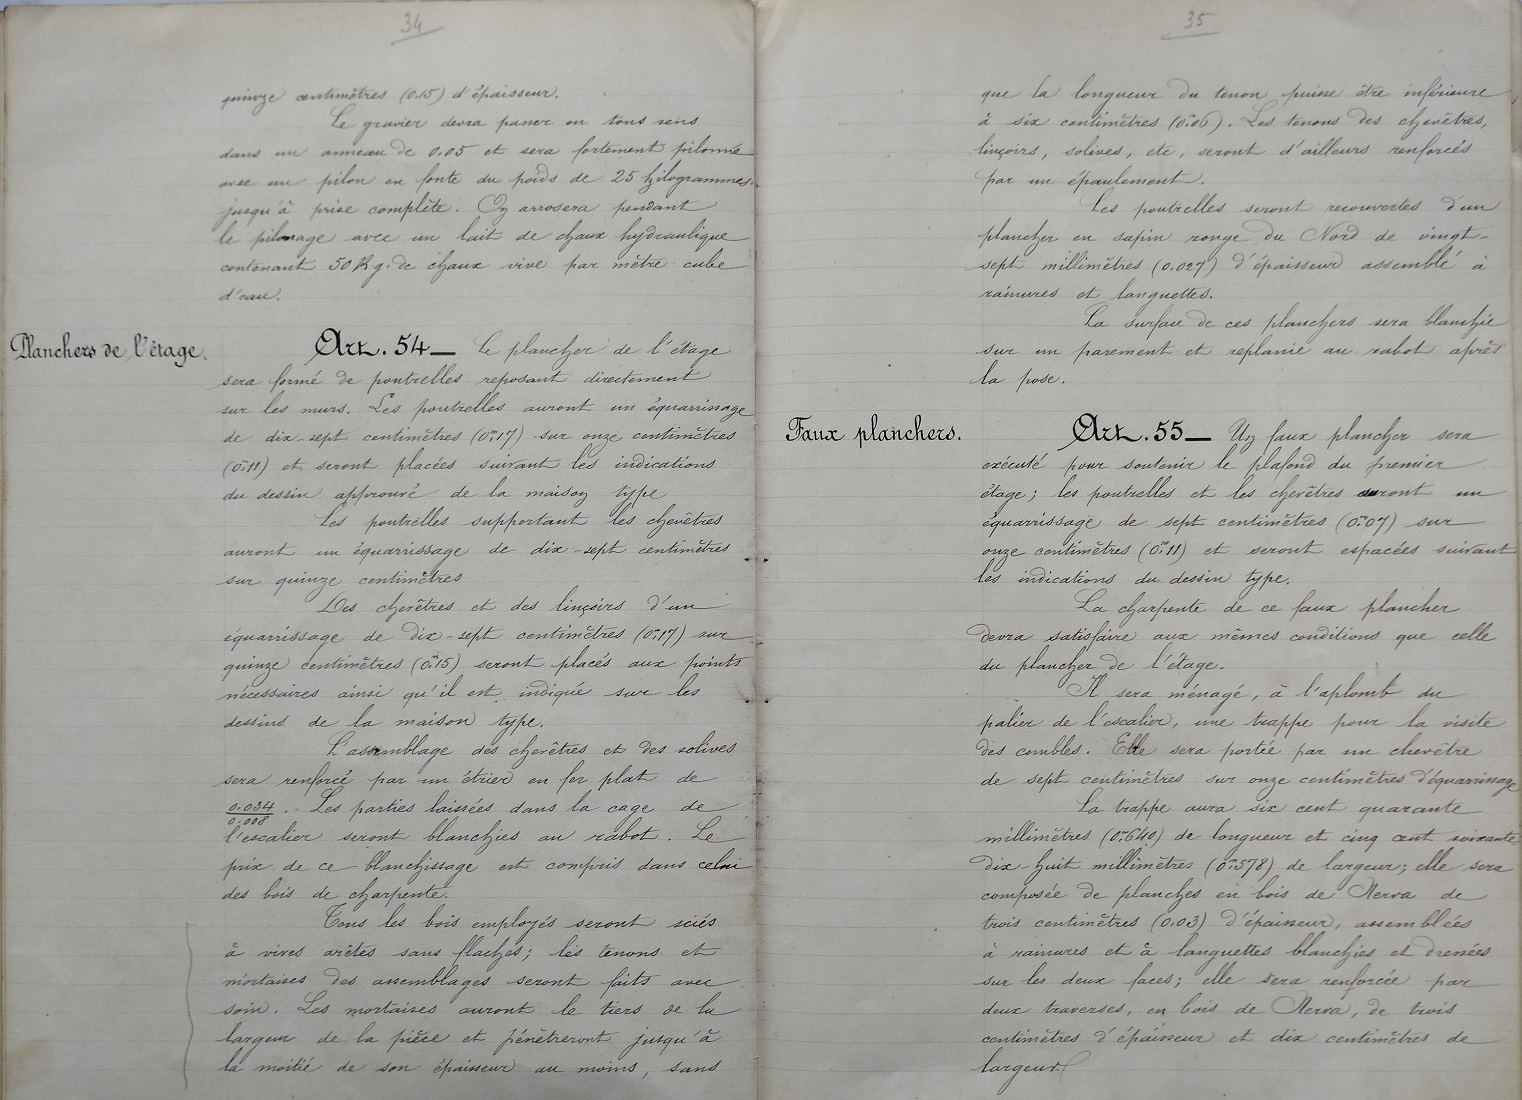 34
quinze centimètres (0.15) d'épaisseur.
Le gravier devra passer en tous sens
dans un anneau de 0.05 et sera fortement pilonné
avec un pilon en fonte du poids de 25 kilogrammes
jusqu'à prise complète. On arrosera pendant
le pilonage avec un lait de chaux hydraulique
contenant 50 Kg. de chaux vive par mètre cube
d'eau.
Planchers de l'étage.
Art. 54 _ Le plancher de l'étage
sera formé de poutrelles reposant directement
sur les murs. Les poutrelles auront un équarrissage
de dix-sept centimètres (0m17) sur onze centimètres
(0m11) et seront placées suivant les indications
du dessin approuvé de la maison type
Les poutrelles supportant les chevêtres
auront un équarrissage de dix-sept centimètres
sur quinze centimètres
Des chevêtres et des linçoirs d'un
équarrissage de dix-sept centimètres (0m17) sur
quinze centimètres (0m15) seront placés aux points
nécessaires ainsi qu'il est indiqué sur les
dessins de la maison type.
L'assemblage des chevêtres et des solives
sera renforcé par un étrier en fer plat de
0.034/0.008 . Les parties laissées dans la cage de
l'escalier seront blanchies au rabot. Le
prix de ce blanchissage est compris dans celui
des bois de charpente.
Tous les bois employés seront sciés
à vives arêtes sans flaches; les tenons et
mortaises des assemblages seront faits avec
soin. Les mortaises auront le tiers de la
largeur de la pièce et pénètreront jusqu'à
la moitié de son épaisseur au moins, sans
35
que la longueur du tenon puisse être inférieure
à six centimètres (0m06). Les tenons des chevêtres,
linçoirs, solives, etc, seront d'ailleurs renforcés
par un épaulement.
Les poutrelles seront recouvertes d'un
plancher en sapin rouge du Nord de vingt-
sept millimètres (0.027) d'épaisseur assemblé à
rainures et languettes.
La surface de ces planchers sera blanchie
sur un parement et replanie au rabot après
la pose.
Faux planchers.
Art. 55 _ Un faux plancher sera
exécuté pour soutenir le plafond du premier
étage; les poutrelles et les chevêtres auront un
équarrissage de sept centimètres (0m07) sur
onze centimètres (0m11) et seront espacées suivant
les indications du dessin type.
La charpente de ce faux plancher
devra satisfaire aux mêmes conditions que celle
du plancher de l'étage.
Il sera ménagé, à l'aplomb du
palier de l'escalier, une trappe pour la visite
des combles. Elle sera portée par un chevêtre
de sept centimètres sur onze centimètres d'équarrissage
La trappe aura six cent quarante
millimètres (0m640) de longueur et cinq cent soixante
dix-huit millimètres (0m578) de largeur; elle sera
composée de planches en bois de Nerva de
trois centimètres (0.03) d'épaisseur, assemblées
à rainures et à languettes blanchies et dressées
sur les deux faces; elle sera renforcée par
deux traverses, en bois de Nerva, de trois
centimètres d'épaisseur et dix centimètres de
largeur.